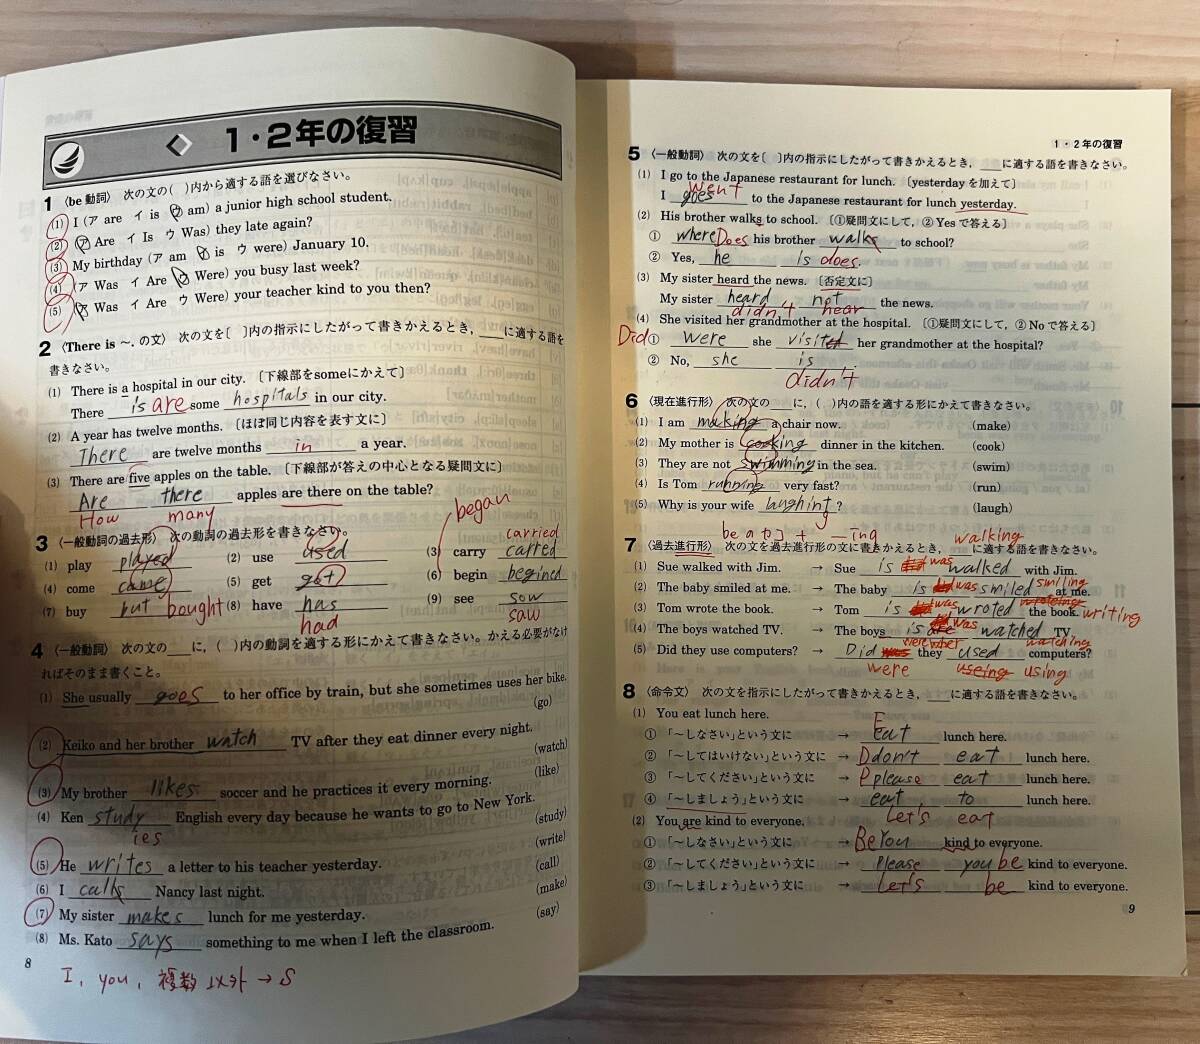 1・2年の復習
1 〈be動詞〉 次の文の( )内から適する語を選びなさい。
(1) I (ア are イ is ウ am) a junior high school student.
(2) (ア Are イ Is ウ Was) they late again?
(3) My birthday (ア am イ is ウ were) January 10.
(4) (ア Was イ Are ウ Were) you busy last week?
(5) (ア Was イ Are ウ Were) your teacher kind to you then?
2 〈There is ~. の文〉 次の文を〔 〕内の指示にしたがって書きかえるとき，___に適する語を
書きなさい。
(1) There is a hospital in our city. 〔下線部をsomeにかえて〕
There is are some hospitals in our city.
(2) A year has twelve months. 〔ほぼ同じ内容を表す文に〕
There are twelve months in a year.
(3) There are five apples on the table. 〔下線部が答えの中心となる疑問文に〕
Are there apples are there on the table?
How many
began
3 〈一般動詞の過去形〉 次の動詞の過去形を書きなさい。
carried
(1) play played (2) use used (3) carry carred
(4) come came (5) get got (6) begin begined
(7) buy but bought (8) have has (9) see sow
had saw
4 〈一般動詞〉 次の文の___に，( )内の動詞を適する形にかえて書きなさい。かえる必要がなけ
ればそのまま書くこと。
(1) She usually goes to her office by train, but she sometimes uses her bike.
(go)
(2) Keiko and her brother watch TV after they eat dinner every night.
(watch)
(3) My brother likes soccer and he practices it every morning.
(like)
(4) Ken study English every day because he wants to go to New York.
ies (study)
(write)
(5) He writes a letter to his teacher yesterday.
(call)
(6) I calls Nancy last night.
(make)
(7) My sister makes lunch for me yesterday.
(say)
(8) Ms. Kato says something to me when I left the classroom.
8
I, you, 複数 以外 → S
1・2年の復習
5 〈一般動詞〉 次の文を〔 〕内の指示にしたがって書きかえるとき，___に適する語を書きなさい。
(1) I go to the Japanese restaurant for lunch. 〔yesterdayを加えて〕
went
I goes to the Japanese restaurant for lunch yesterday.
(2) His brother walks to school. 〔①疑問文にして，② Yesで答える〕
① where Does his brother walks to school?
② Yes, he is does.
(3) My sister heard the news. 〔否定文に〕
My sister heard not the news.
didn't hear
(4) She visited her grandmother at the hospital. 〔①疑問文にして，② Noで答える〕
Did ① were she visited her grandmother at the hospital?
② No, she is
didn't
6 〈現在進行形〉 次の文の___に，( )内の語を適する形にかえて書きなさい。
(1) I am making a chair now. (make)
(2) My mother is cooking dinner in the kitchen. (cook)
(3) They are not swimming in the sea. (swim)
(4) Is Tom running very fast? (run)
(5) Why is your wife laughing? (laugh)
beのカコ + ―ing walking
7 〈過去進行形〉 次の文を過去進行形の文に書きかえるとき，___に適する語を書きなさい。
(1) Sue walked with Jim. → Sue is was walked with Jim.
(2) The baby smiled at me. → The baby is was smiled smiling at me.
(3) Tom wrote the book. → Tom is was wroted the book. writing
(4) The boys watched TV. → The boys is was watched TV.
watching
(5) Did they use computers? → Did they used computers?
were useing using
8 〈命令文〉 次の文を指示にしたがって書きかえるとき，___に適する語を書きなさい。
(1) You eat lunch here.
① 「~しなさい」という文に → Eat lunch here.
② 「~してはいけない」という文に → Ddon't eat lunch here.
③ 「~してください」という文に → Pplease eat lunch here.
④ 「~しましょう」という文に → eat to lunch here.
Let's eat
(2) You are kind to everyone.
① 「~しなさい」という文に → Be You kind to everyone.
② 「~してください」という文に → Please you be kind to everyone.
③ 「~しましょう」という文に → Let's be kind to everyone.
9